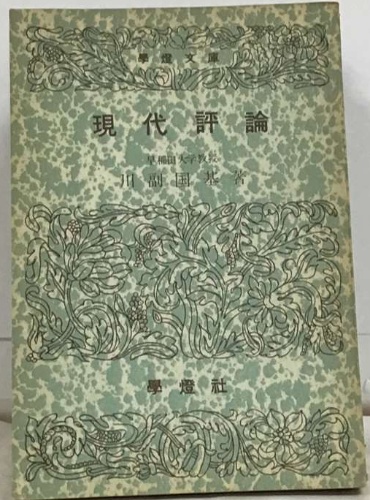 學燈文庫
現代評論
早稲田大学教授
川副国基著
學燈社